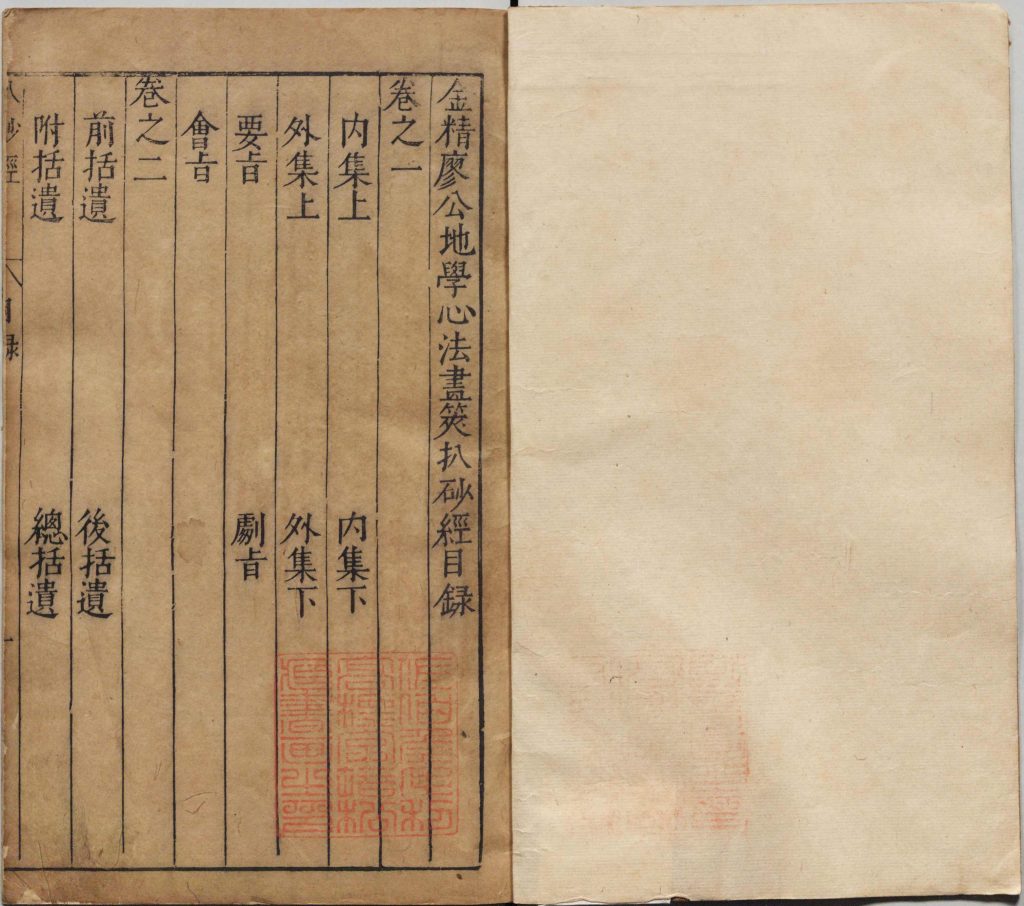 金精廖公地學心法畫筴扒砂經目録
卷之一
内集上 内集下
外集上 外集下
要㫖 劇㫖
會㫖
卷之二
前括遺 後括遺
附括遺 總括遺
扒砂經 目録 一